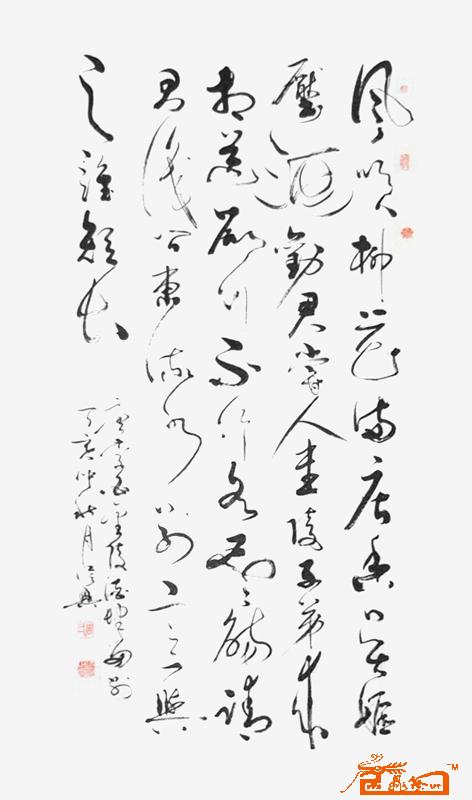 風吹柳花滿店香吳姬
壓酒勸君嘗金陵子弟來
相送欲行不行各盡觴請
君試問東流水別意與
之誰短長
唐李白金陵酒肆留別
丁亥仲秋月